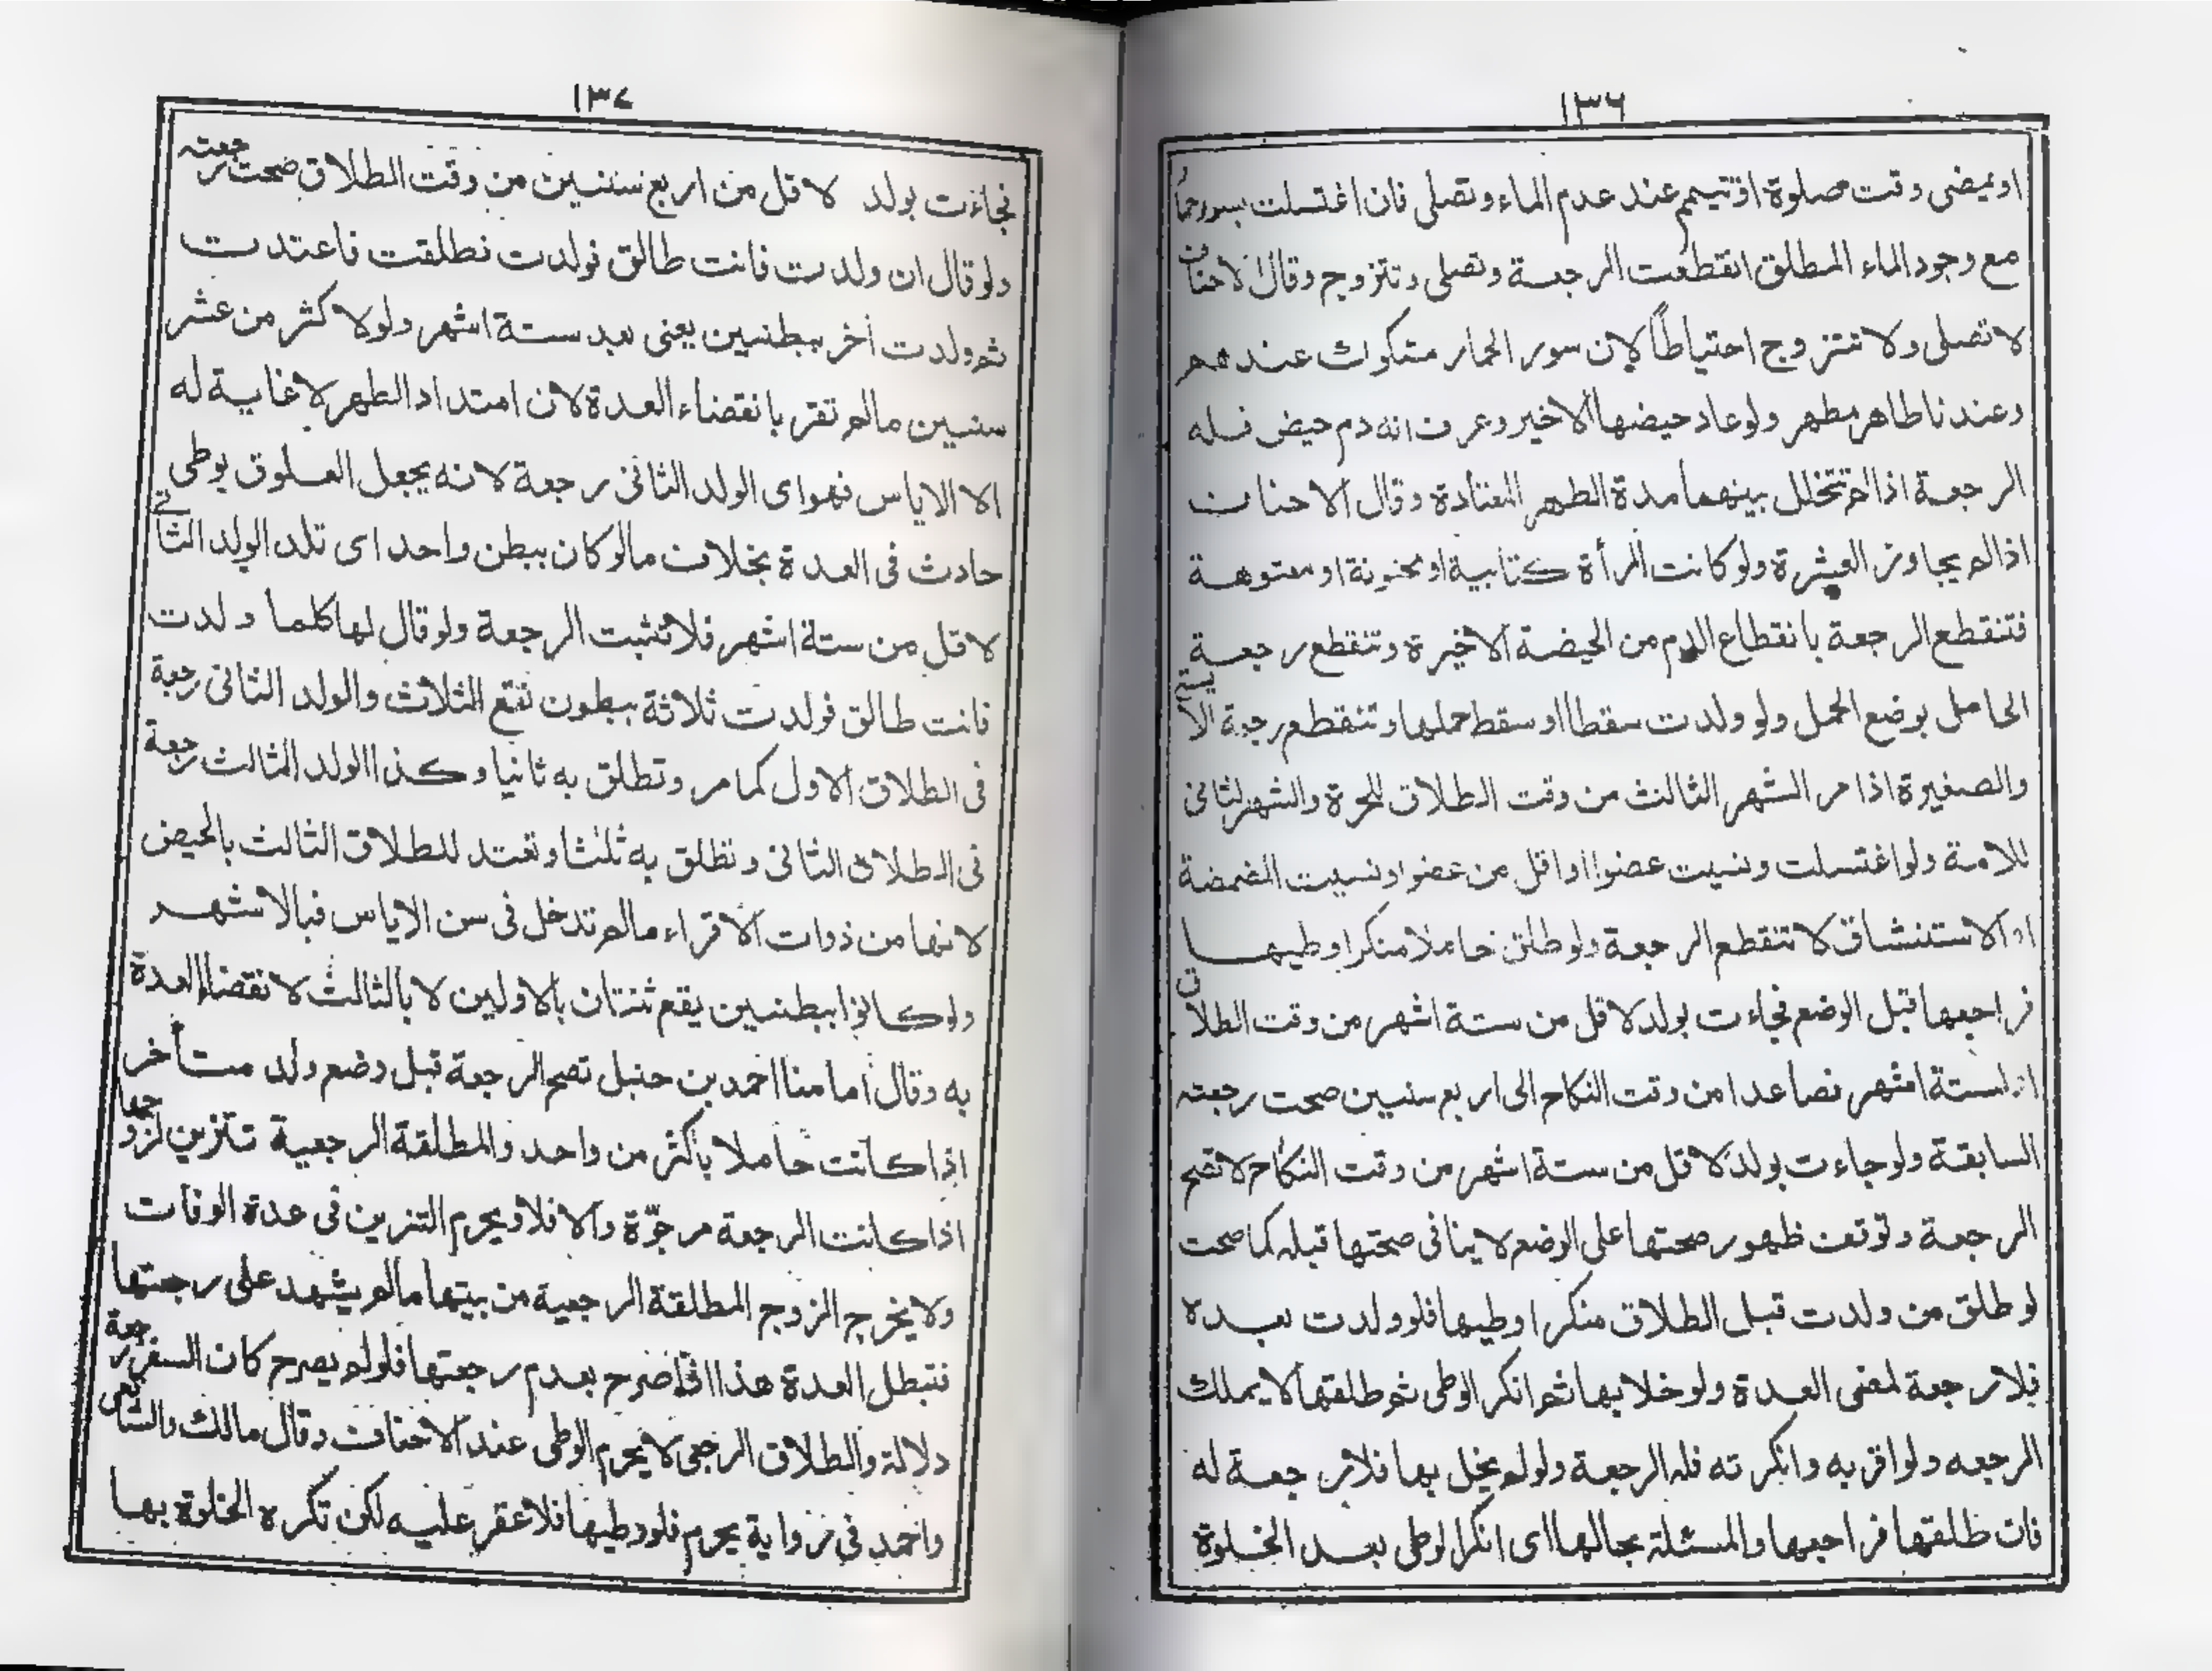 ١٣٦
او يمضى وقت صلوة او تتيمم عند عدم الماء وتصلى فان اغتسلت بسور حمار
مع وجود الماء المطلق انقطعت الرجعة وتصلى وتتزوج وقال الاحناف
لا تصلى ولا تتزوج احتياطاً لان سور الحمار مشكوك عندهم
وعندنا طاهر مطهر ولو عاد حيضها الاخير وعرف انه دم حيض فله
الرجعة اذا لم تتخلل بينهما مدة الطهر المعتادة وقال الاحناف
اذا لم يجاوز العشرة ولو كانت المرأة كتابية او مجنونة او معتوهة
فتنقطع الرجعة بانقطاع الدم من الحيضة الاخيرة وتنقطع رجعة
الحامل بوضع الحمل ولو ولدت سقطا او سقط حملها وتنقطع رجعة الآيسة
والصغيرة اذا مر الشهر الثالث من وقت الطلاق للحرة والشهر الثانى
للامة ولو اغتسلت ونسيت عضوا او اقل من عضو او نسيت المضمضة
او الاستنشاق لا تنقطع الرجعة ولو طلق حاملا منكرا وطيها
فراجعها قبل الوضع فجاءت بولد لاقل من ستة اشهر من وقت الطلاق
او لستة اشهر فصاعدا من وقت النكاح الى اربع سنين صحت رجعته
السابقة ولو جاءت بولد لاقل من ستة اشهر من وقت النكاح لا تصح
الرجعة وتوقف ظهور صحتها على الوضع لا ينافى صحتها قبله كما صحت
لو طلق من ولدت قبل الطلاق منكرا وطيها فلو ولدت بعده
فلا رجعة لمضى العدة ولو خلا بها ثم انكر الوطى ثم طلقها لا يملك
الرجعه ولو اقر به وانكرته فله الرجعة ولو لم يخل بها فلا رجعة له
فان طلقها فراجعها والمسئلة بحالها اى انكر الوطى بعد الخلوة
١٣٧
فجاءت بولد لاقل من اربع سنين من وقت الطلاق صحت رجعته
ولو قال ان ولدت فانت طالق فولدت فطلقت فاعتدت
ثم ولدت آخر ببطنين يعنى بعد ستة اشهر ولو لاكثر من عشر
سنين مالم تقر بانقضاء العدة لان امتداد الطهر لا غاية له
الا الاياس فهو اى الولد الثانى رجعة لانه يجعل العلوق بوطى
حادث فى العدة بخلاف مالو كان ببطن واحد اى تلد الولد الثانى
لاقل من ستة اشهر فلا تثبت الرجعة ولو قال لها كلما ولدت
فانت طالق فولدت ثلاثة ببطون تقع الثلاث والولد الثانى رجعة
فى الطلاق الاول كما مر وتطلق به ثانيا وكذا الولد الثالث رجعة
فى الطلاق الثانى وتطلق به ثلثا وتعتد للطلاق الثالث بالحيض
لانها من ذوات الاقراء مالم تدخل فى سن الاياس فبالاشهر
ولو كانوا ببطنين يقع ثنتان بالاولين لا بالثالث لانقضاء العدة
به وقال امامنا احمد بن حنبل تصح الرجعة قبل وضع ولد متأخر
اذا كانت حاملا باكثر من واحد والمطلقة الرجعية تتزين لزوجها
اذا كانت الرجعة مرجوّة والا فلا ويحرم التزين فى عدة الوفات
ولا يخرج الزوج المطلقة الرجعية من بيتها مالم يشهد على رجعتها
فتبطل العدة هذا اذا صرح بعدم رجعتها فلو لم يصرح كان السفر رجعة
دلالة والطلاق الرجعى لا يحرم الوطى عند الاحناف وقال مالك والشافعى
واحمد فى رواية يحرم فلو وطيها فلا عقر عليه لكن تكره الخلوة بها